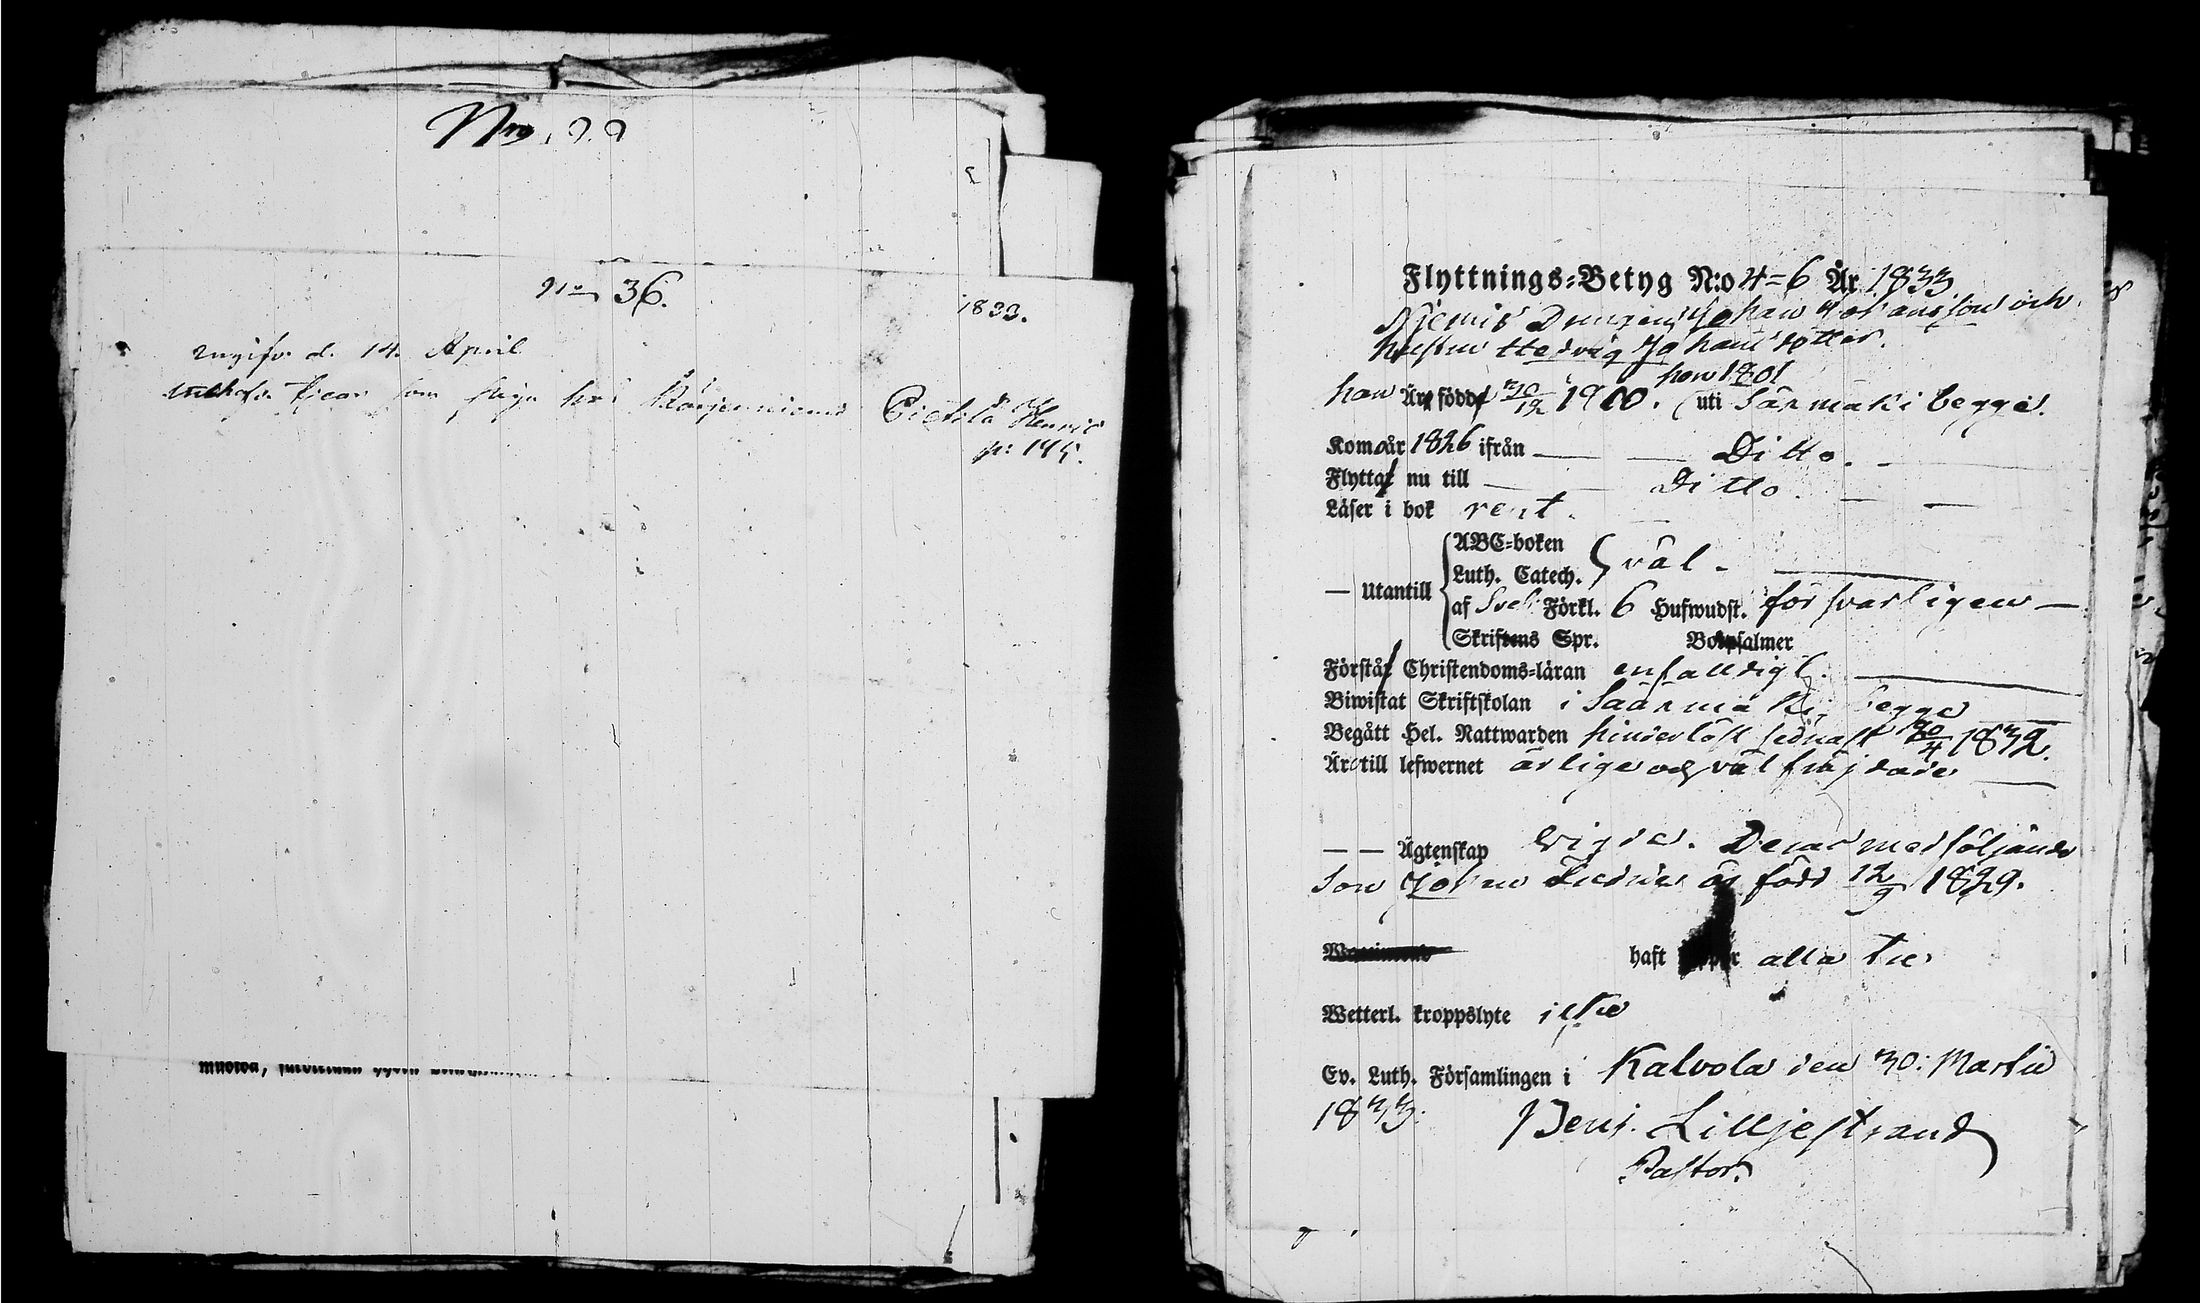 No 36.
1833.
d. 14. April
som hos
Pietilä Henric
p: 145.
Flyttnings-Betyg N:o 4-6 År 1833
Drengen Johan Johansson och
hustru Hedvig Johansdotter.
hon 1801
han Är född 30/12 1800. uti Säxmäki begge.
Kom år 1826 ifrån — — Ditto. -
Flytta nu till — — Ditto. — —
Läser i bok rent.
— Utantill
ABC-boken
Luth. Catech. } väl. —
af Sveb. Förkl. 6 Hufwudst. försvarligen —
Skriftens Spr. Botpsalmer
Förstå Christendoms-läran enfalldigt. —
Biwistat Skriftskolan i Sääxmäki begge
Begått Hel. Nattwarden hinderlöst sednast 20/4 1832.
Äro till lefwernet ärlige och väl frejdade —
— — Ägtenskap vigde. Deras medföljande
Son Johan Fredric är född 12/9 1829.
haft alla tre
Wetterl. kroppslyte icke
Ev. Luth. Församlingen i Kalvola den 30. Martii
1833.
Benj. Lilljestrand
Pastor.